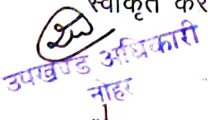 स्वीकृत कर
उपखण्ड अधिकारी
नोहर